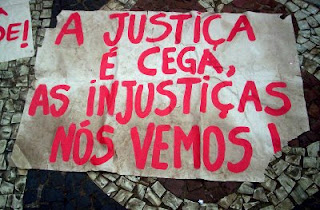 A JUSTIÇA
É CEGA,
AS INJUSTIÇAS
NÓS VEMOS!
DE!